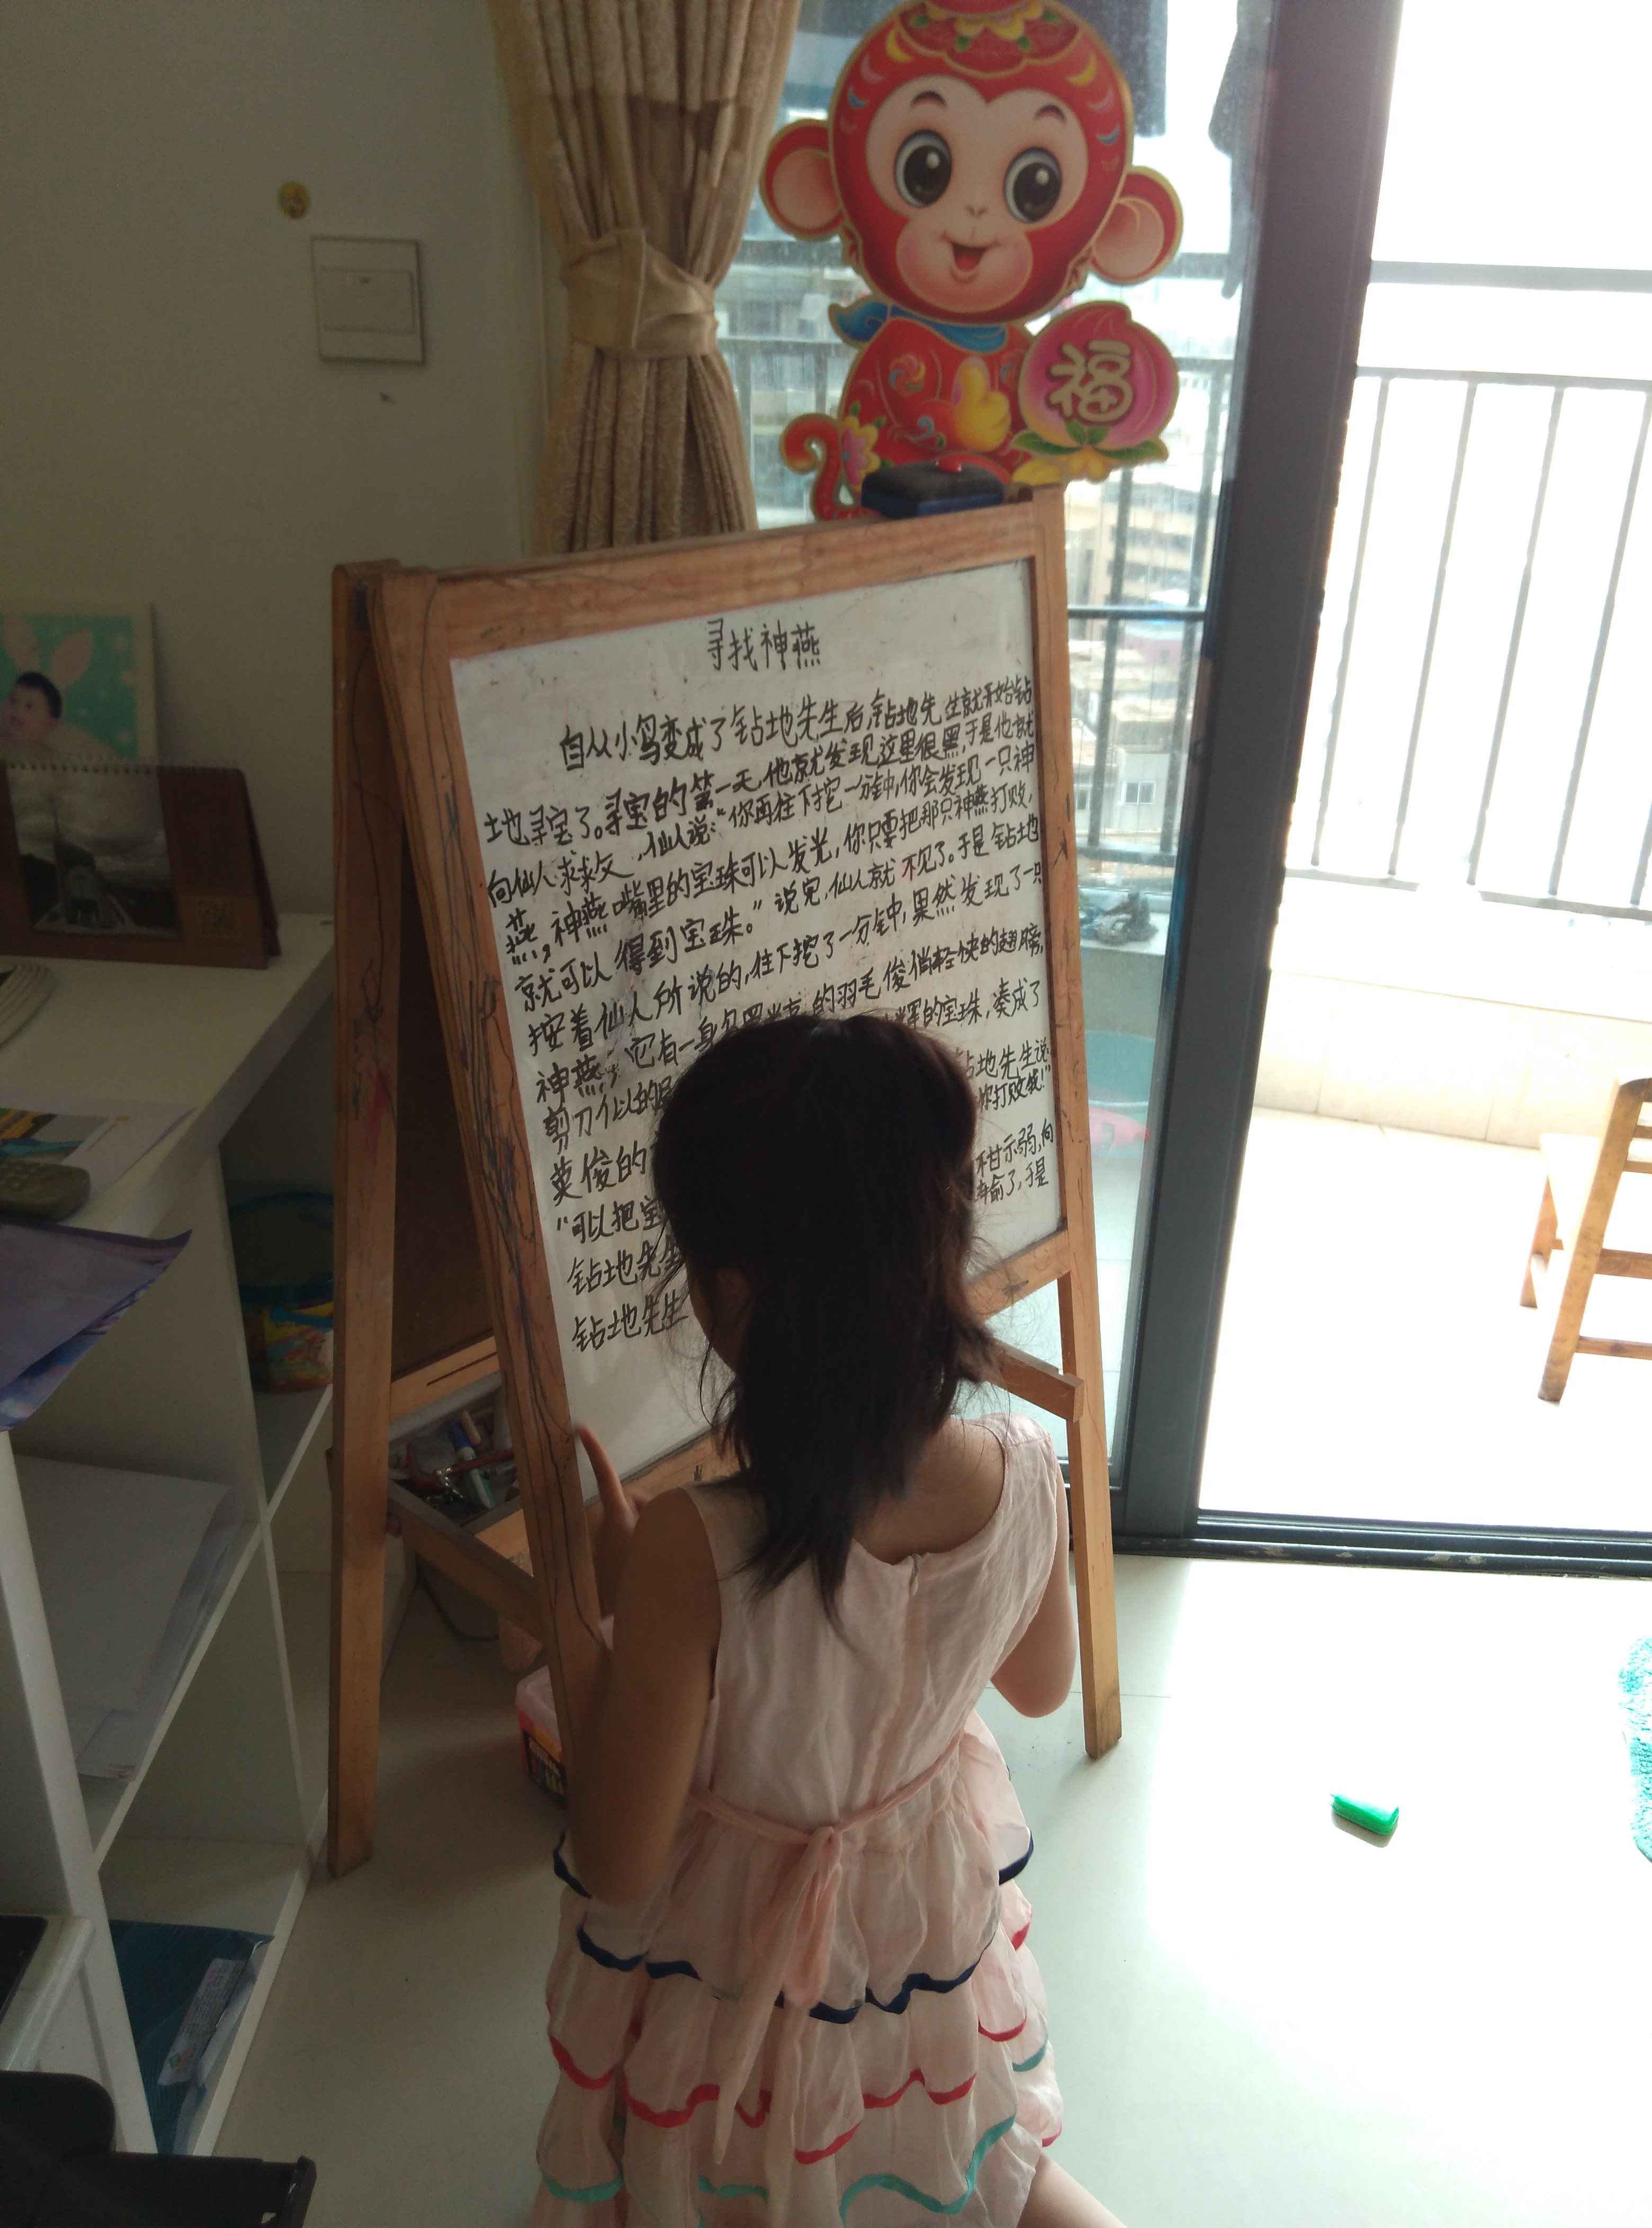 福
寻找神燕
自从小鸟变成了钻地先生后,钻地先生就开始钻
地寻宝了。寻宝的第一天,他就发现这里很黑,于是他就
向仙人求救,仙人说:“你再往下挖一分钟,你会发现一只神
燕,神燕嘴里的宝珠可以发光,你只要把那只神燕打败,
就可以得到宝珠。”说完,仙人就不见了。于是钻地
按着仙人所说的,往下挖了一分钟,果然发现了一只
神燕,它有一身乌黑光亮的羽毛俊俏轻快的翅膀,
剪刀似的 的宝珠,凑成了
英俊的 钻地先生说:
“可以把宝 你打败我!”
钻地先生 不甘示弱,向
钻地先生 输了,于是